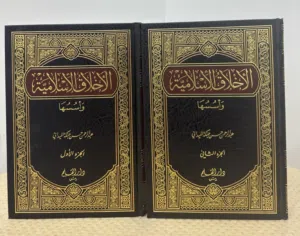 الأخلاق الإسلامية
وأسسها
عبد الرحمن حسن حبنكة الميداني
الجزء الأول
دار القلم
الأخلاق الإسلامية
وأسسها
عبد الرحمن حسن حبنكة الميداني
الجزء الثاني
دار القلم